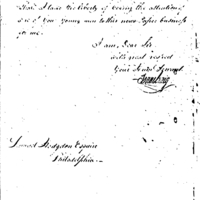 that I take the liberty of craving the attention
one of your young men to this news paper business
for me.
I am, Dear Sir
with great respect
Your Most
Samuel Hodgdon Esquire
Philadelphia